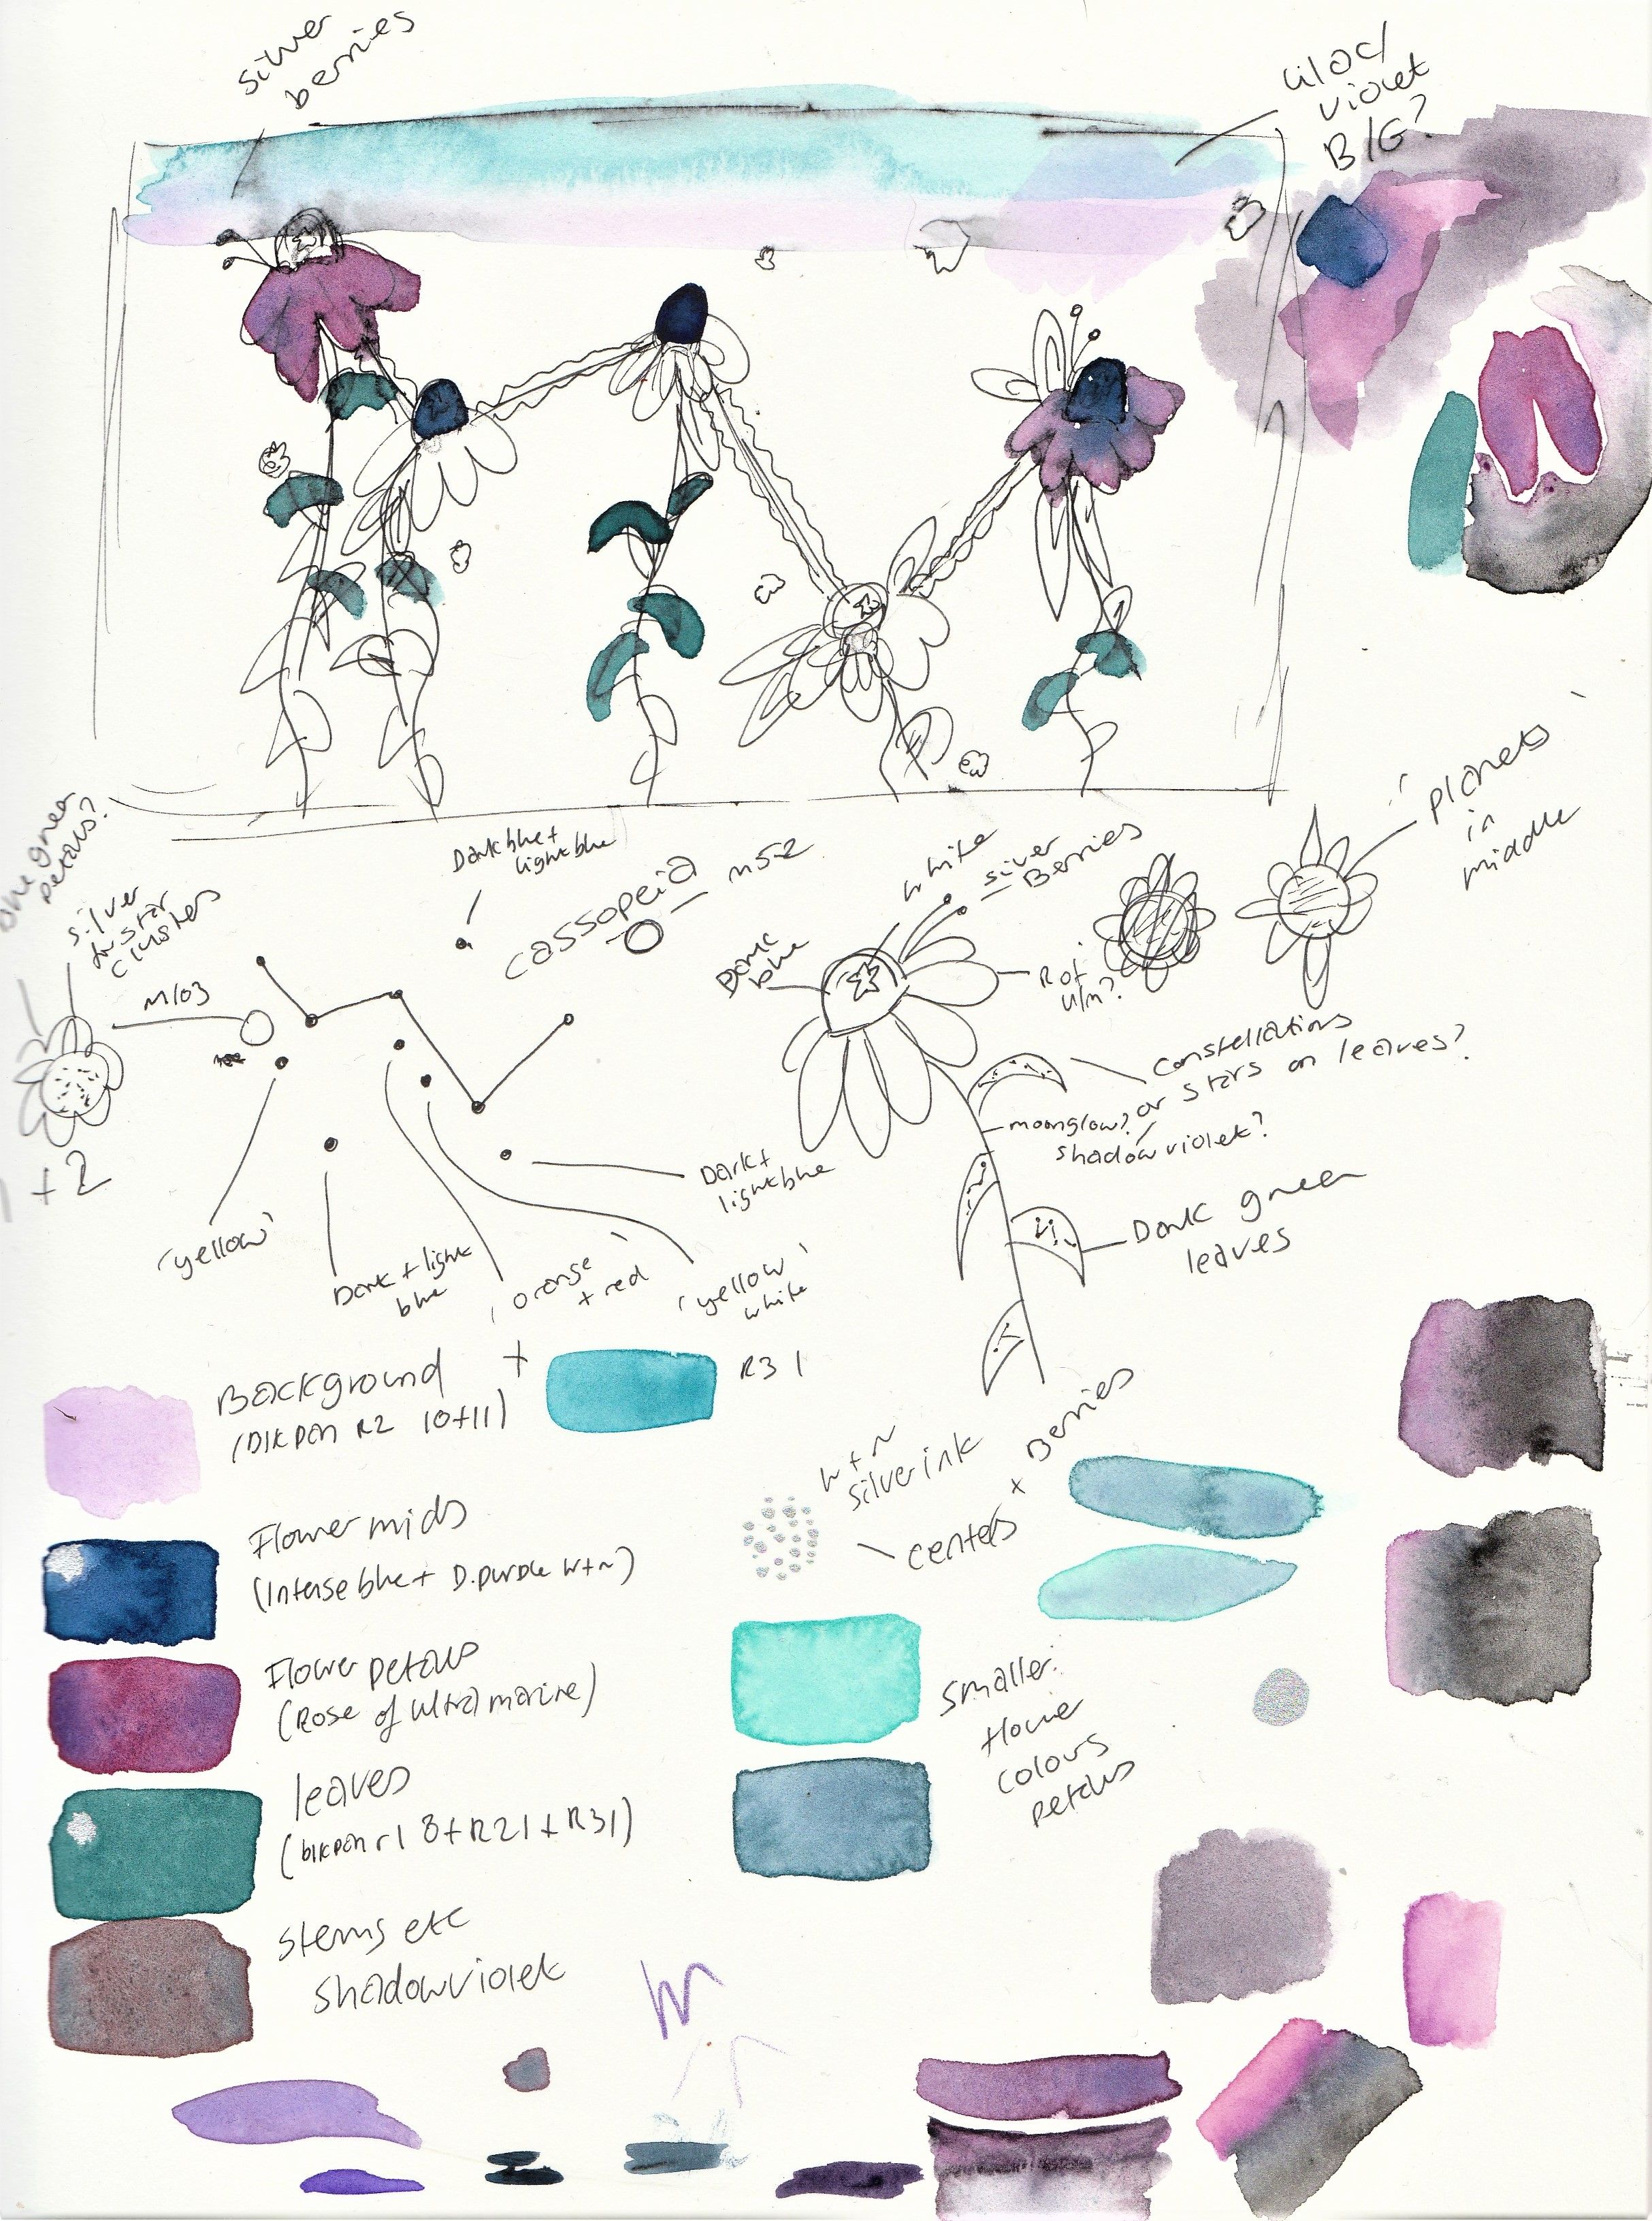 silver
berries
lilac/
violet
B/G?
planets
in
middle
one green
petals?
silver
in star
clusters
M103
+2
Dark blue +
light blue
cassopeia
M52
white
silver
Berries
Dark
blue
R of
U/M?
constellations
or stars on leaves?
moonglow?
shadow violet?
Dark green
leaves
'yellow'
Dark + light
blue
'orange
+ red'
'yellow
white'
Dark +
light blue
Background
(Dlkpan R2 10+11)
+
R31
Flower mids
(Intense blue + D.purple W+N)
Flower petals
(Rose of ultramarine)
leaves
(blkpan r1 8+R21+R31)
stems etc
shadow violet
W+N
silver ink
centers + Berries
smaller
flower
colours
petals